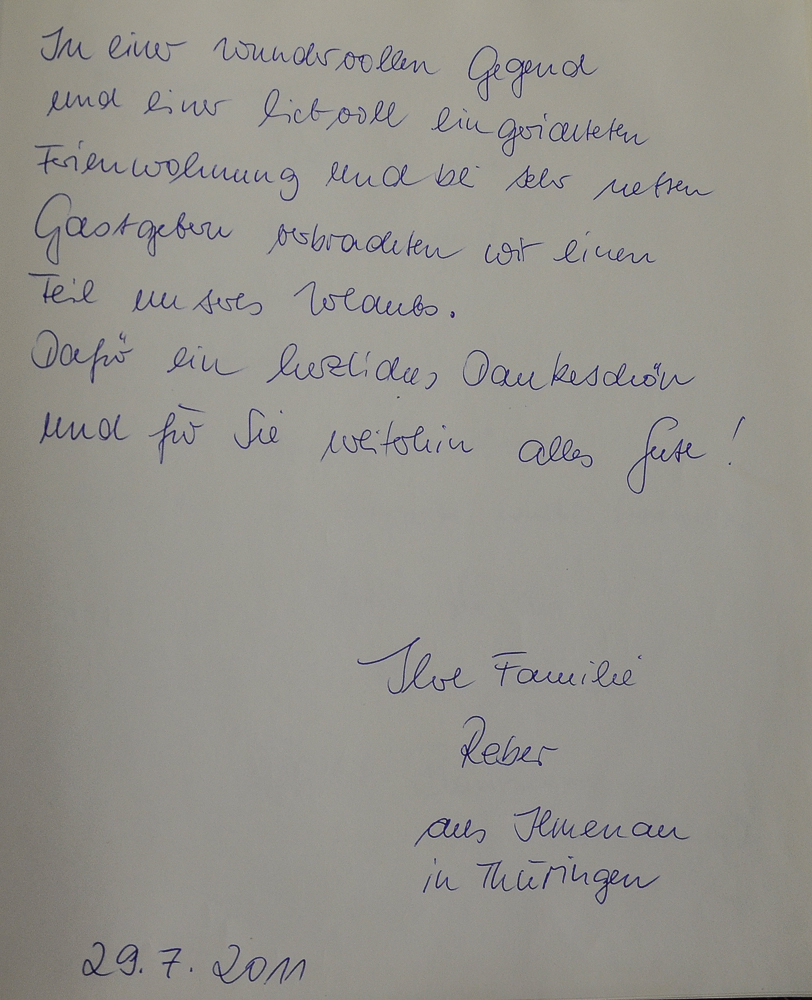 In einer wundervollen Gegend
und einer liebvoll eingerichteten
Ferienwohnung und bei sehr netten
Gastgebern verbrachten wir einen
Teil unseres Urlaubs.
Dafür ein herzliches Dankeschön
und für Sie weiterhin alles Gute!
Ihre Familie
Reber
aus Ilmenau
in Thüringen
29.7.2011